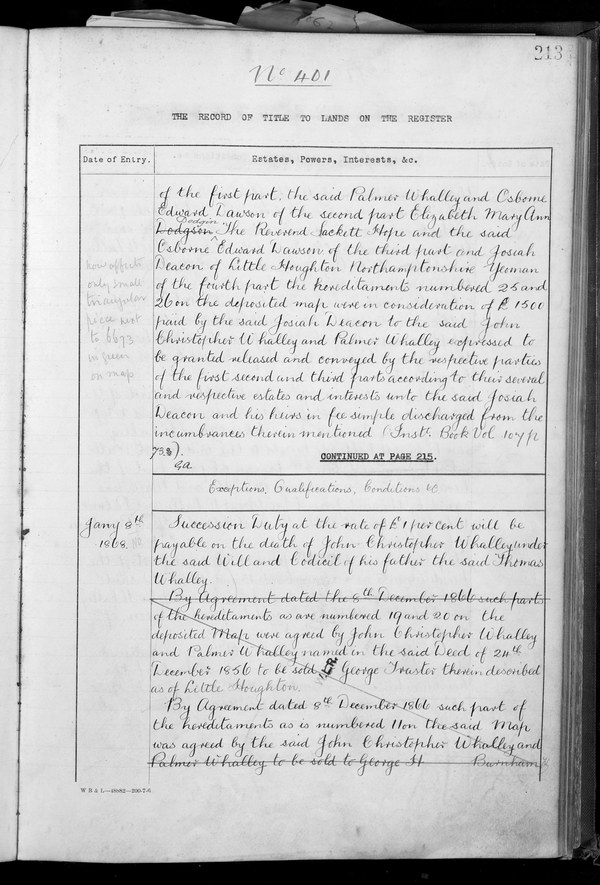 213
No 401
THE RECORD OF TITLE TO LANDS ON THE REGISTER
Date of Entry.
Estates, Powers, Interests, &c.
of the first part, the said Palmer Whalley and Osborne
Edward Dawson of the second part Elizabeth Mary Ann
Dodgin
Dodgson The Reverend Sackett Hope and the said
Osborne Edward Dawson of the third part and Josiah
Deacon of Little Houghton Northamptonshire Yeoman
of the fourth part the hereditaments numbered 25 and
26 on the deposited map were in consideration of £1500
paid by the said Josiah Deacon to the said John
Christopher Whalley and Palmer Whalley expressed to
be granted released and conveyed by the respective parties
of the first second and third parts according to their several
and respective estates and interests unto the said Josiah
Deacon and his heirs in fee simple discharged from the
incumbrances therein mentioned (Inst. Book Vol 107 p
73).
CONTINUED AT PAGE 215.
now affects
only small
triangular
piece next
to 6673
in green
on map
Exceptions, Qualifications, Conditions &c
Jany 8th
1868.
Succession Duty at the rate of £1 per cent will be
payable on the death of John Christopher Whalley under
the said Will and Codicil of his father the said Thomas
Whalley.
By Agreement dated the 8th December 1866 such parts
of the hereditaments as are numbered 19 and 20 on the
deposited Map were agreed by John Christopher Whalley
and Palmer Whalley named in the said Deed of 24th
December 1856 to be sold George Traster therein described
as of Little Houghton.
By Agreement dated 8th December 1866 such part of
the hereditaments as is numbered 11 on the said Map
was agreed by the said John Christopher Whalley and
Palmer Whalley to be sold to George H Burnham
W B & L